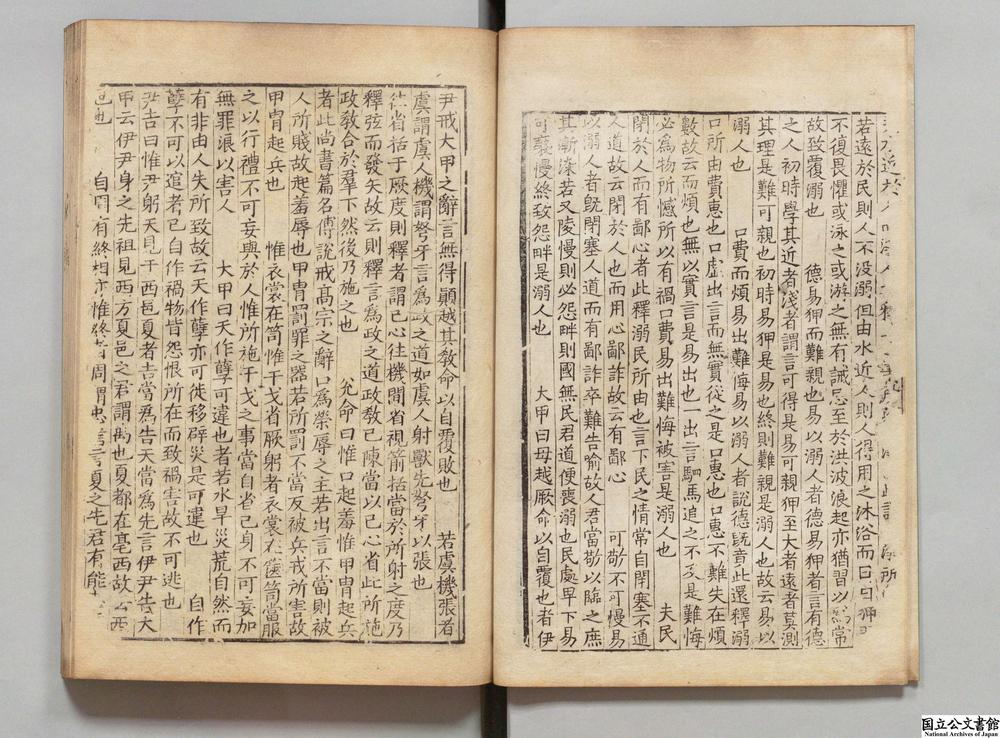 近於人
若遠於民則人不没溺但由水近人則人得用之沐浴而日日狎
不復畏懼或泳之或游之無有誡忌至於洪波浪起亦猶習以爲常
故致覆溺也 德易狎而難親也易以溺人者德易狎者言有德
之人初時學其近者淺者謂言可得是易可親狎至大者遠者莫測
其理是難可親也初時易狎是易也終則難親是溺人也故云易以
溺人也 口費而煩易出難悔易以溺人者說德旣竟此還釋溺
口所由費惠也口虛出言而無實從之是口惠也口惠不難失在煩
數故云而煩也無以實言是易出也一出言駟馬追之不及是難悔
必爲物所憾所以有禍口費易出難悔被害是溺人也 夫民
閉於人而有鄙心者此釋溺民所由也言下民之情常自閉塞不通
人道故云閉於人也而用心鄙詐故云有鄙心 可敬不可慢易
以溺人者旣閉塞人道而有鄙詐卒難告喻故人君當敬以臨之庶
其漸染若又陵慢則必怨畔則國無民君道便喪溺也民處卑下易
可褻慢終致怨畔是溺人也 大甲曰毋越厥命以自覆也者伊
尹戒大甲之辭言無得顚越其敎命以自覆敗也 若虞機張者
虞謂虞人機謂弩牙言爲政之道如虞人射獸先弩牙以張也
往省括于厥度則釋者謂已心往機閒省視箭括當於所射之度乃
釋弦而發矢故云則釋言爲政之道政敎已陳當以己心省此所施
政敎合於羣下然後乃施之也 允命曰惟口起羞惟甲冑起兵
者此尚書篇名傅說戒高宗之辭口爲榮辱之主若出言不當則被
人所賤故起羞辱也甲冑罰罪之器若所罰不當反被兵戒所害故
甲冑起兵也 惟衣裳在笥惟干戈省厥躬者衣裳在篋笥當服
之以行禮不可妄與於人惟所施干戈之事當自省己身不可妄加
無罪浪以害人 大甲曰天作孽可違也者若水旱災荒自然而
有非由人失所致故云天作孽亦可徙移辟災是可違也 自作
孽不可以逭者己自作禍物皆怨恨所在而致禍害故不可逃也
尹吉曰惟尹躬天見于西邑夏者吉當爲告天當爲先言伊尹告大
甲云伊尹身之先祖見西方夏邑之君謂禹也夏都在亳西故云西
邑也 自周有終相亦惟終者周謂忠信言夏之先君有能
国立公文書館
National Archives of Japan